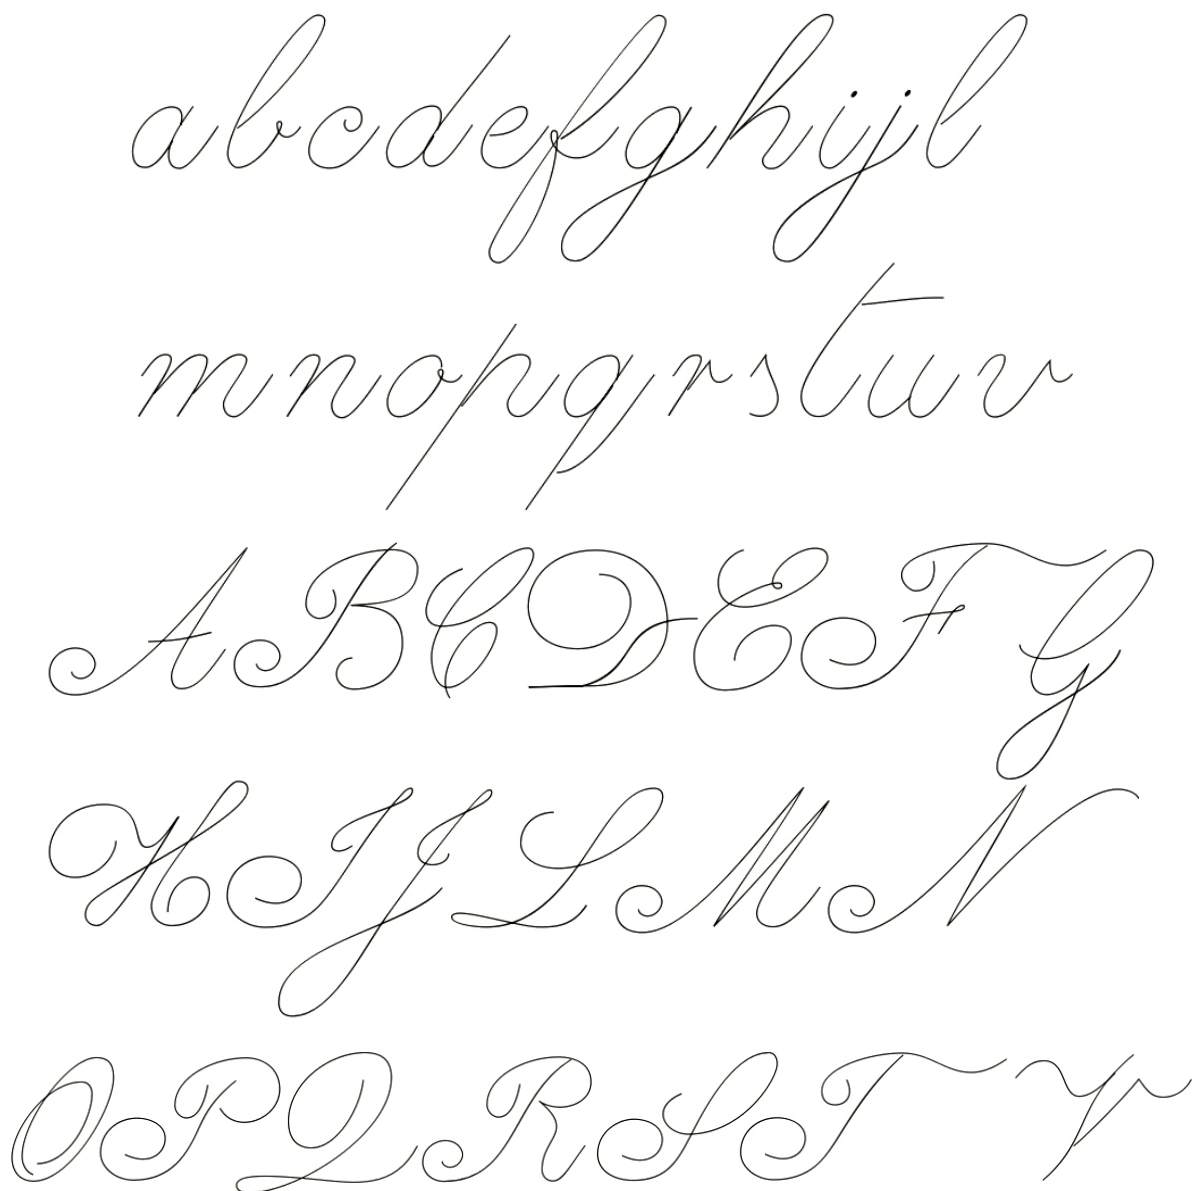 abcdefghijl
mnopqrstuv
ABCDEFG
HIJLMN
OPQRSTV